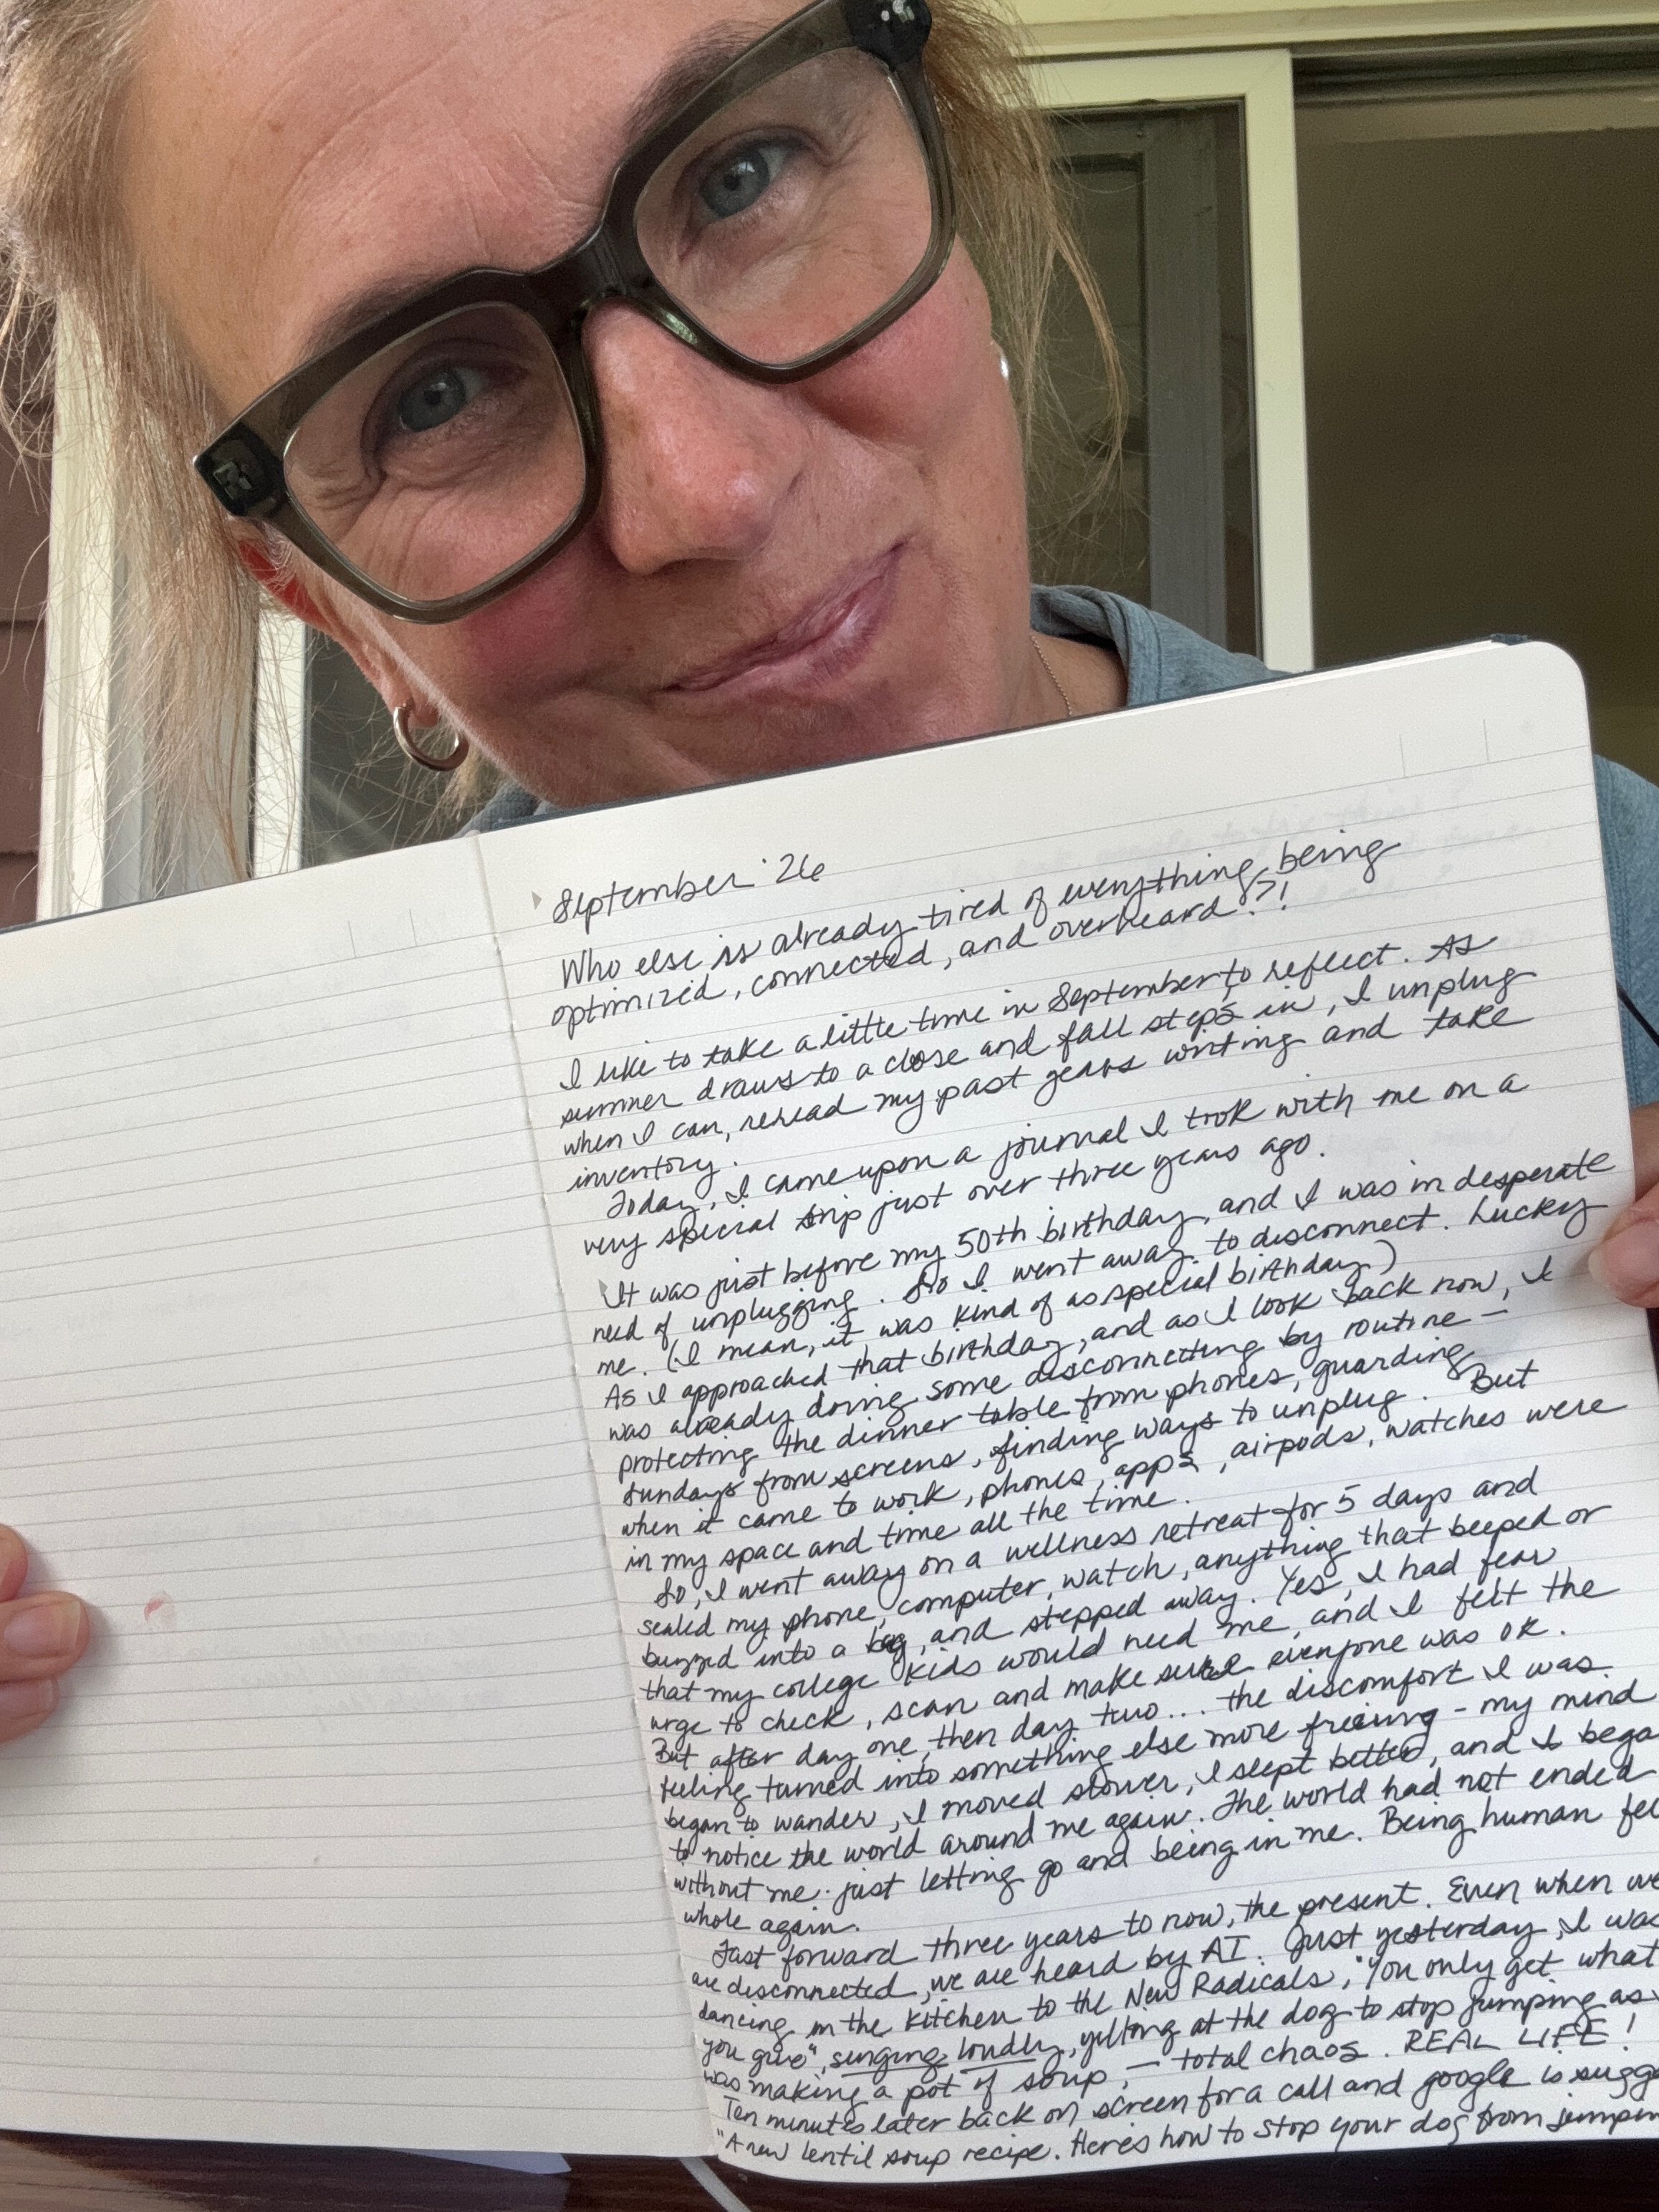 September '26
Who else is already tired of everything being
optimized, connected, and overheard?!
I like to take a little time in September, to reflect. As
summer draws to a close and fall steps in, I unplug
when I can, reread my past years writing and take
inventory.
Today, I came upon a journal I took with me on a
very special trip just over three years ago.
It was just before my 50th birthday, and I was in desperate
need of unplugging. So I went away to disconnect. Lucky
me. (I mean, it was kind of as special birthday.)
As I approached that birthday, and as I look back now, I
was already doing some disconnecting by routine —
protecting the dinner table from phones, guarding
Sundays from screens, finding ways to unplug. But
when it came to work, phones, apps, airpods, watches were
in my space and time all the time.
So, I went away on a wellness retreat for 5 days and
sealed my phone, computer, watch, anything that beeped or
buzzed into a bag, and stepped away. Yes, I had fear
that my college kids would need me, and I felt the
urge to check, scan and make sure everyone was OK.
But after day one, then day two... the discomfort I was
feeling turned into something else more freeing - my mind
began to wander, I moved slower, I slept better, and I bega
to notice the world around me again. The world had not ended
without me. just letting go and being in me. Being human fel
whole again.
Fast forward three years to now, the present. Even when we
are disconnected, we are heard by AI. Just yesterday, I was
dancing in the kitchen to the New Radicals, "You only get what
you give", singing loudly, yelling at the dog to stop jumping as
was making a pot of soup, — total chaos. REAL LIFE!
Ten minutes later back on screen for a call and google is sugge
"A new lentil soup recipe. Here's how to stop your dog from jumpin